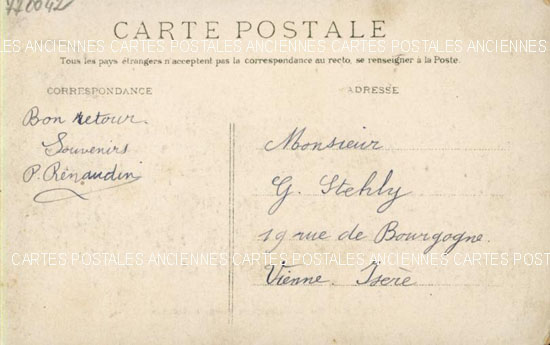 772042
CARTE POSTALE
CARTES POSTALES ANCIENNES CARTES POSTALES ANCIENNES CARTES POSTALES ANCIENNES
Tous les pays étrangers n'acceptent pas la correspondance au recto, se renseigner à la Poste.
CORRESPONDANCE
Bon retour.
Souvenirs
P. Rénaudin
ADRESSE
Monsieur
G. Stehly
19 rue de Bourgogne.
CARTES POSTALES ANCIENNES CARTES POSTALES ANCIENNES CARTES POSTALES ANCIENNES
Vienne. Isère